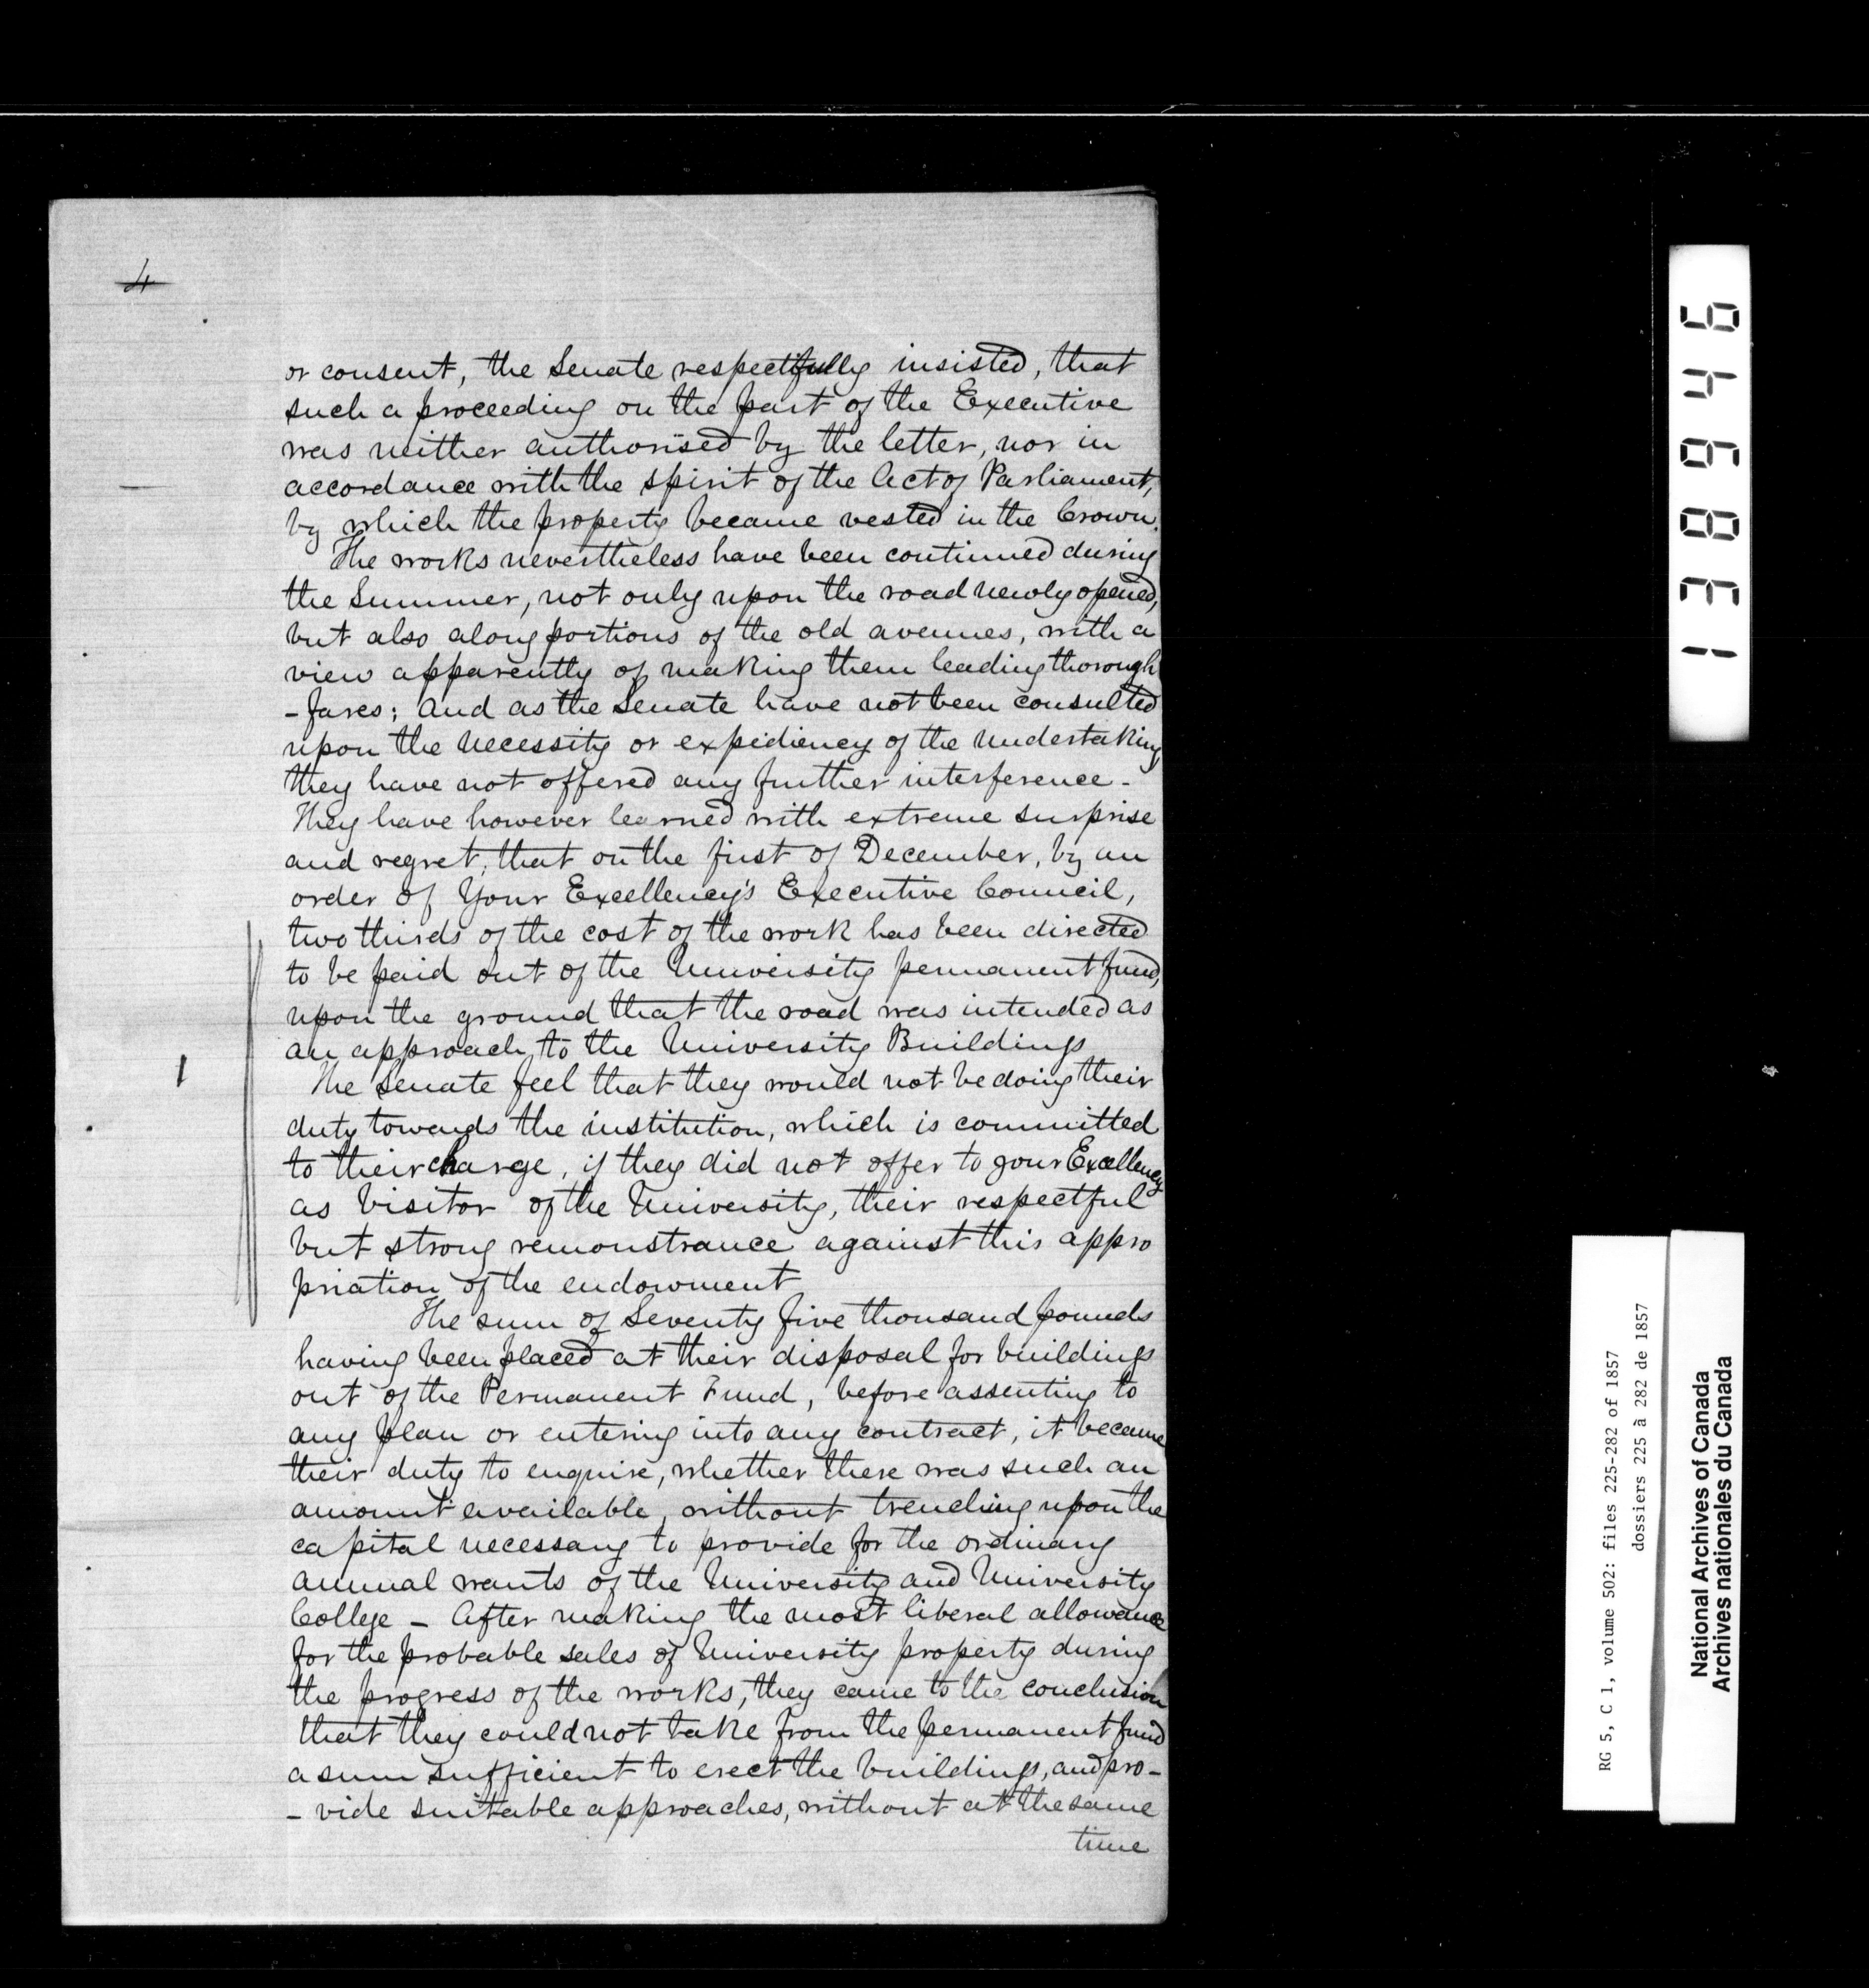 4
or consent, the Senate respectfully insisted, that
such a proceeding on the part of the Executive
was neither authorised by the letter, nor in
accordance with the spirit of the Act of Parliament,
by which the property became vested in the Crown.
The works nevertheless have been continued during
the Summer, not only upon the road newly opened,
but also along portions of the old avenues, with a
view apparently of making them leading thorough
-fares; And as the Senate have not been consulted
upon the necessity or expediency of the undertaking,
they have not offered any further interference -
They have however learned with extreme surprise
and regret, that on the first of December, by an
order of Your Excellency's Executive Council,
two thirds of the cost of the work has been directed
to be paid out of the University permanent fund,
upon the ground that the road was intended as
an approach to the University Buildings
1
The Senate feel that they would not be doing their
duty towards the institution, which is committed
to their charge, if they did not offer to your Excellency
as Visitor of the University, their respectful
but strong remonstrance against this appro
priation of the endowment
The sum of Seventy five thousand pounds
having been placed at their disposal for buildings
out of the Permanent Fund, before assenting to
any plan or entering into any contract, it became
their duty to enquire, whether there was such an
amount available, without trenching upon the
capital necessary to provide for the ordinary
annual wants of the University and University
College - After making the most liberal allowance
for the probable sales of University property during
the progress of the works, they came to the conclusion
that they could not take from the permanent fund
a sum sufficient to erect the buildings, and pro-
- vide suitable approaches, without at the same
time
138946
RG 5, C 1, volume 502: files 225-282 of 1857
dossiers 225 à 282 de 1857
National Archives of Canada
Archives nationales du Canada